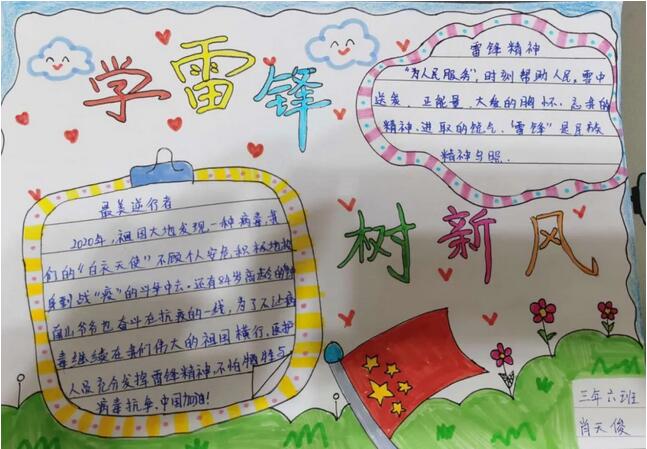 学雷锋
雷锋精神
“为人民服务”,时刻帮助人民,雪中
送炭、正能量、大爱的胸怀、忘我的
精神、进取的锐气,“雷锋”是民族
精神与照.
树新风
最美逆行者
2020年,祖国大地发现一种病毒,我
们的“白衣天使”不顾个人安危,积极地投
到战“疫”的斗争中去.还有84岁高龄的钟
南山爷爷也奋斗在抗疫的一线,为了不让病
毒继续在我们伟大的祖国横行,医护
人员充分发挥雷锋精神,不怕牺牲与
病毒抗争,中国加油!
三年六班
肖天俊